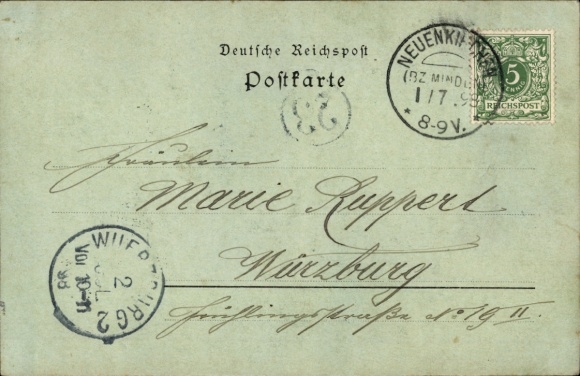 Deutsche Reichspost
Postkarte
NEUENKIRCHEN
(BZ. MINDEN)
1/7.98
* 8-9V.
5
PFENNIG
REICHSPOST
23
Fräulein
Marie Ruppert
Würzburg
Frühlingsstraße No 19 II.
WUERZBURG 2
2
JUL
VOR 10-11
98